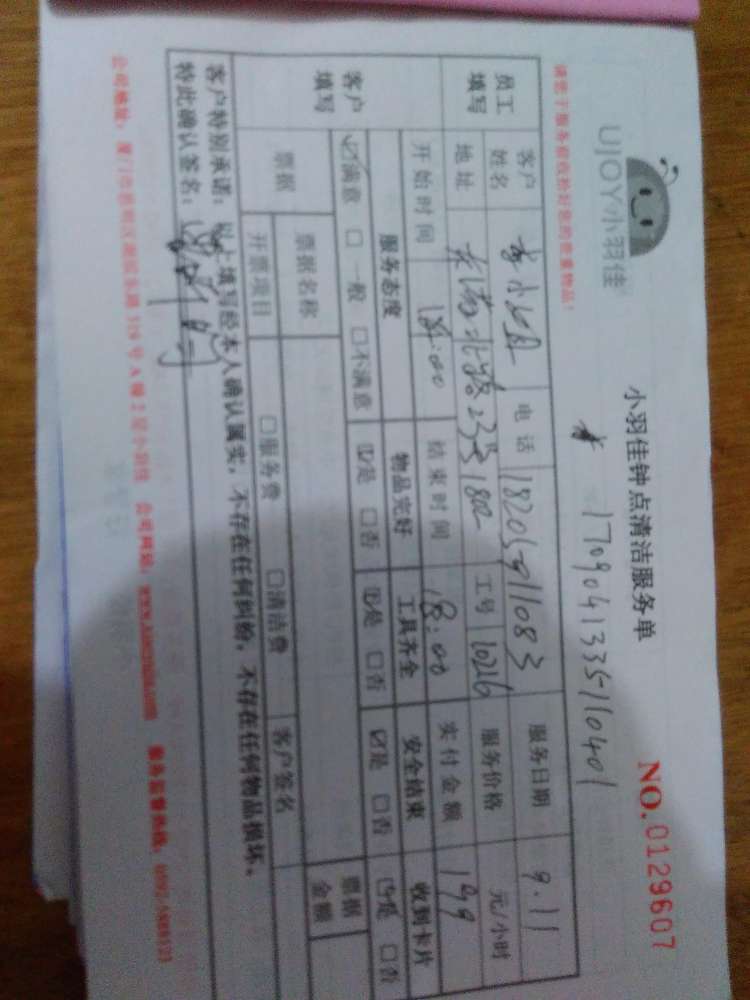 UJOY小羽佳
小羽佳钟点清洁服务单
NO.0129607
1709041335110401
请您于服务前收拾好您的贵重物品!
员工填写 客户姓名 李小姐 电话 18205911083 服务日期 9.11
地址 长浩北路23号1802 工号 10216 服务价格 元/小时
开始时间 :00 结束时间 18:00 实付金额 199
客户填写 服务态度 物品完好 工具齐全 安全结束 收到卡片
☑满意 □一般 □不满意 ☑是 □否 ☑是 □否 ☑是 □否 ☑是 □否
票据 票据名称 客户签名 票据金额
开票项目 □服务费 □清洁费
客户特别承诺:以上填写经本人确认属实,不存在任何纠纷,不存在任何物品损坏。
特此确认签名:
公司地址:厦门市思明区湖滨东路319号A幢2层小羽佳 公司网站:www.xiaoyujia.com 服务监督热线:0592-